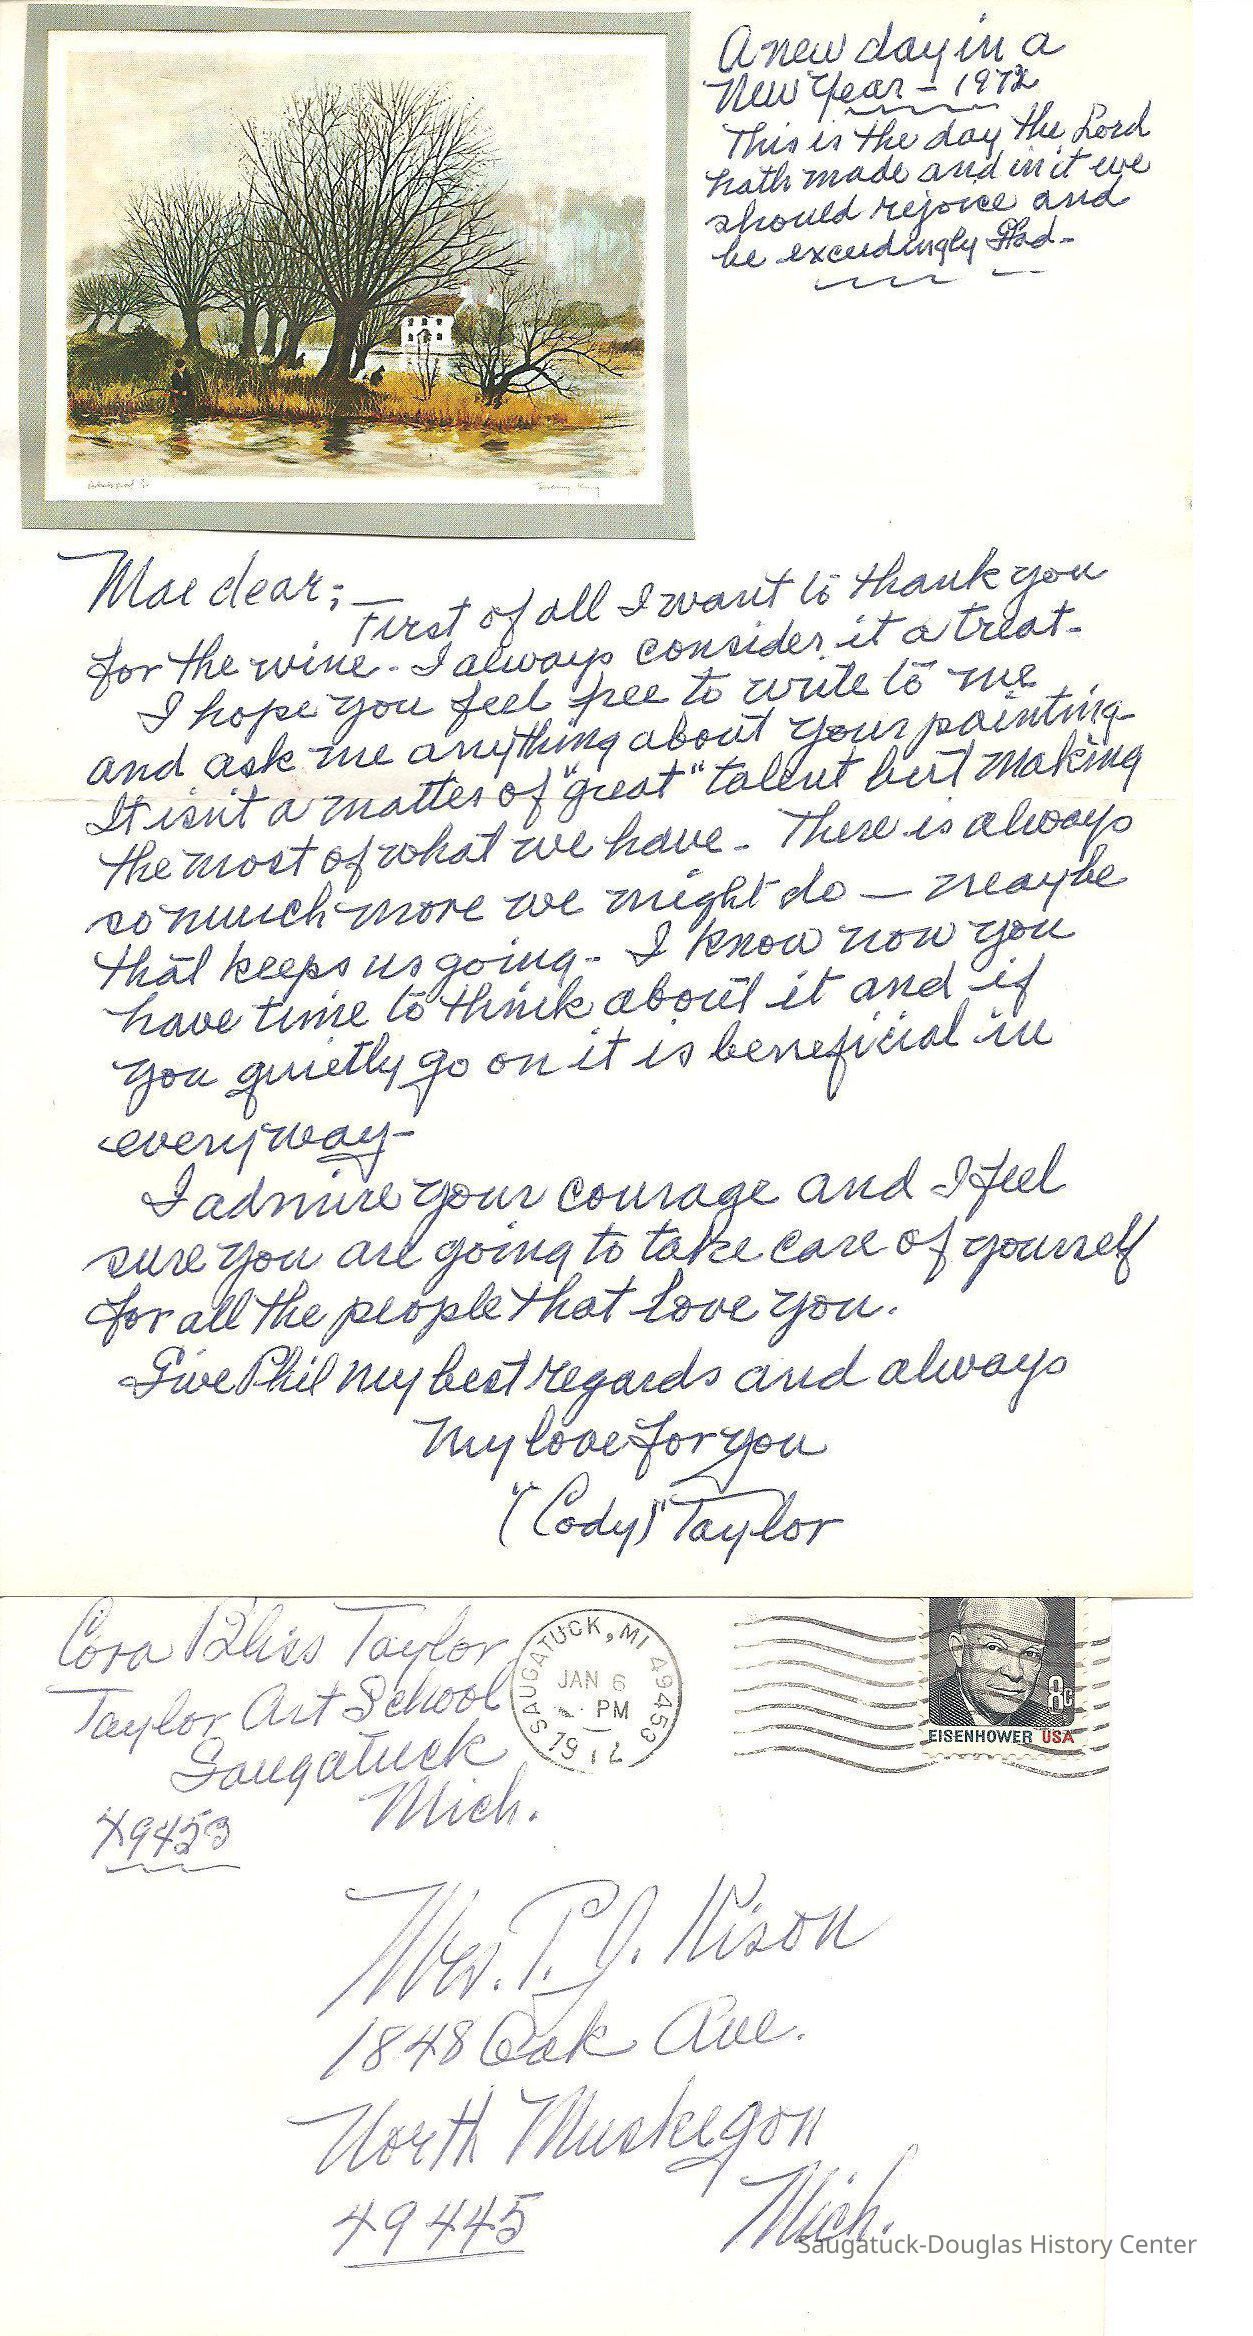 A new day in a
New Year - 1972
This is the day the Lord
hath made and in it we
should rejoice and
be exceedingly Glad -
Mae dear; -
First of all I want to thank you
for the wine - I always consider it a treat -
I hope you feel free to write to me
and ask me anything about your painting -
It isn't a matter of "great" talent but making
the most of what we have - There is always
so much more we might do — maybe
that keeps us going - I know now you
have time to think about it and if
you quietly go on it is beneficial in
every way -
I admire your courage and I feel
sure you are going to take care of yourself
for all the people that love you.
Give Phil my best regards and always
My love for you
"(Cody)" Taylor
Cora Bliss Taylor
Taylor Art School
Saugatuck
Mich.
49453
SAUGATUCK, MI 49453
JAN 6
PM
1972
8c
EISENHOWER USA
Mrs. P. J. Kison
1848 Oak Ave.
North Muskegon
Mich.
49445
Saugatuck-Douglas History Center